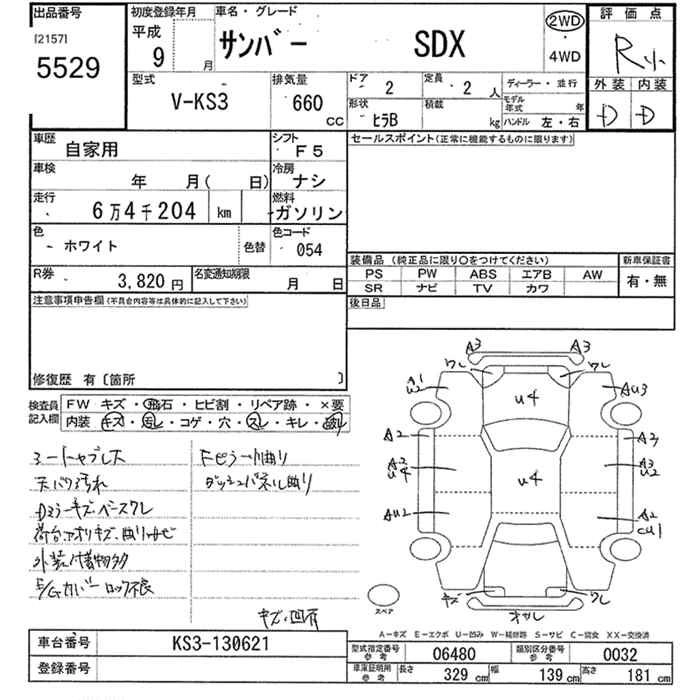 出品番号
[2157]
5529
初度登録年月
平成
9
月
車名・グレード
サンバー SDX
2WD
・
4WD
評価点
R
外装 内装
D D
型式
V-KS3
排気量
660
CC
ドア 2
定員 2 人
形状 ヒラB
積載 kg
ディーラー・並行
モデル年式 年
ハンドル 左・右
車歴
自家用
シフト
F5
車検
年 月( 日)
冷房
ナシ
走行
6万4千204 km
燃料
ガソリン
色
ホワイト
色替
色コード
054
R券
3,820円
名変通知期限
月 日
注意事項申告欄(不具合内容等は具体的に記入して下さい)
修復歴 有〔箇所 〕
セールスポイント(正常に機能するものに限ります)
装備品(純正品に限り○をつけてください)
PS PW ABS エアB AW
SR ナビ TV カワ
新車保証書
有・無
後日品
検査員記入欄
FW キズ・飛石・ヒビ割・リペア跡・×要
内装 キズ・汚レ・コゲ・穴・スレ・キレ・
天バリ汚れ
ダッシュパネル曲り
ロック不良
A3 A3
ワレ ワレ
U4
AU3
A2 A3
U4
A2
U4
A3
U2
AU2
A2
CU1
キズ ワレ
スペア
A-キズ E-エクボ U-凹み W-補修跡 S-サビ C-腐食 XX-交換済
車台番号
KS3-130621
登録番号
型式指定番号
参考
06480
類別区分番号
参考
0032
車庫証明用
参考
長さ 329 cm
幅 139 cm
高さ 181 cm